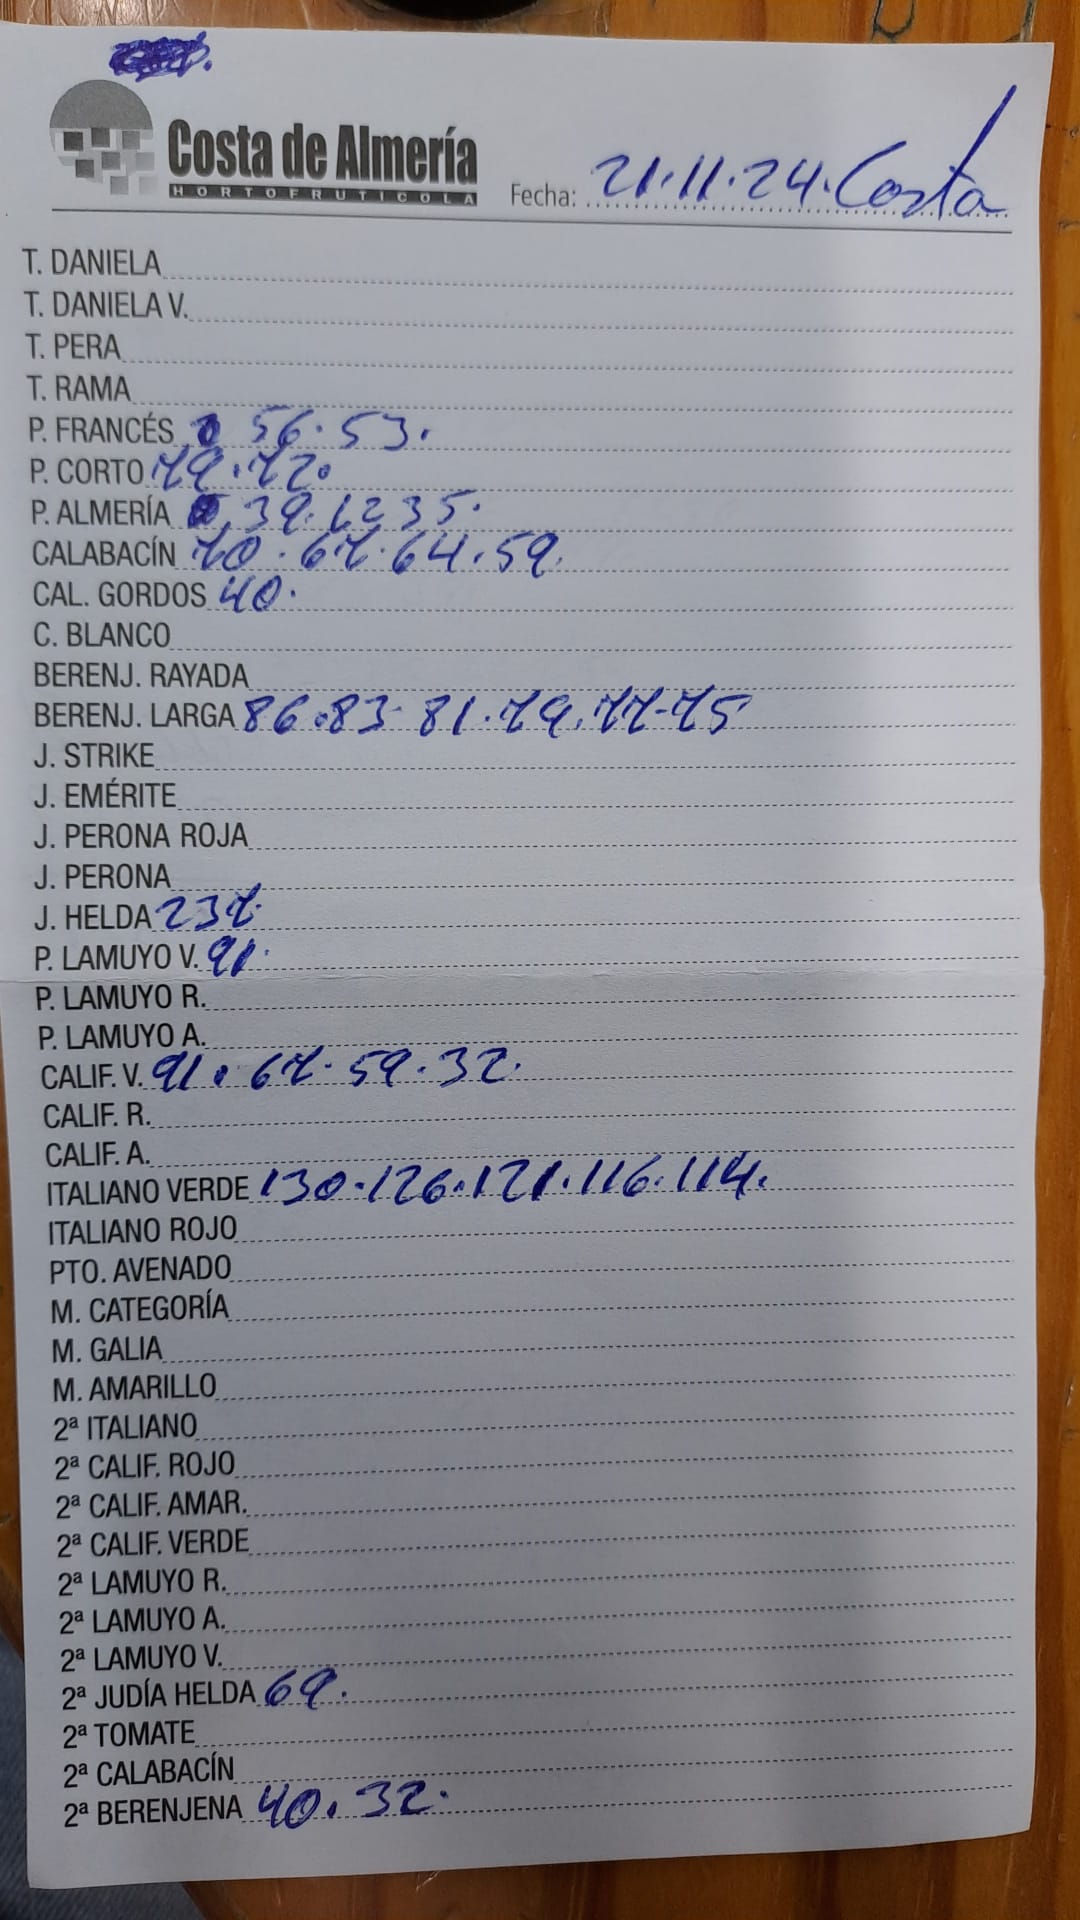 Costa de Almería
HORTOFRUTICOLA
Fecha: 21.11.24. Costa
T. DANIELA
T. DANIELA V.
T. PERA
T. RAMA
P. FRANCÉS 56. 53.
P. CORTO 79. 72.
P. ALMERÍA 39. 35.
CALABACÍN 70. 67. 64. 59.
CAL. GORDOS 40.
C. BLANCO
BERENJ. RAYADA
BERENJ. LARGA 86. 83 81. 79. 77-75
J. STRIKE
J. EMÉRITE
J. PERONA ROJA
J. PERONA
J. HELDA 237.
P. LAMUYO V. 91.
P. LAMUYO R.
P. LAMUYO A.
CALIF. V. 91. 67. 59. 32.
CALIF. R.
CALIF. A.
ITALIANO VERDE 130. 126. 121. 116. 114.
ITALIANO ROJO
PTO. AVENADO
M. CATEGORÍA
M. GALIA
M. AMARILLO
2ª ITALIANO
2ª CALIF. ROJO
2ª CALIF. AMAR.
2ª CALIF. VERDE
2ª LAMUYO R.
2ª LAMUYO A.
2ª LAMUYO V.
2ª JUDÍA HELDA 69.
2ª TOMATE
2ª CALABACÍN
2ª BERENJENA 40. 32.